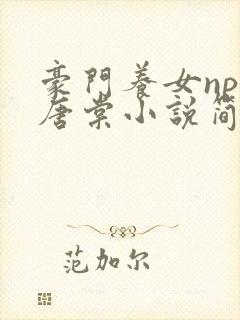 豪門養女np
唐棠小說簡
范加尔